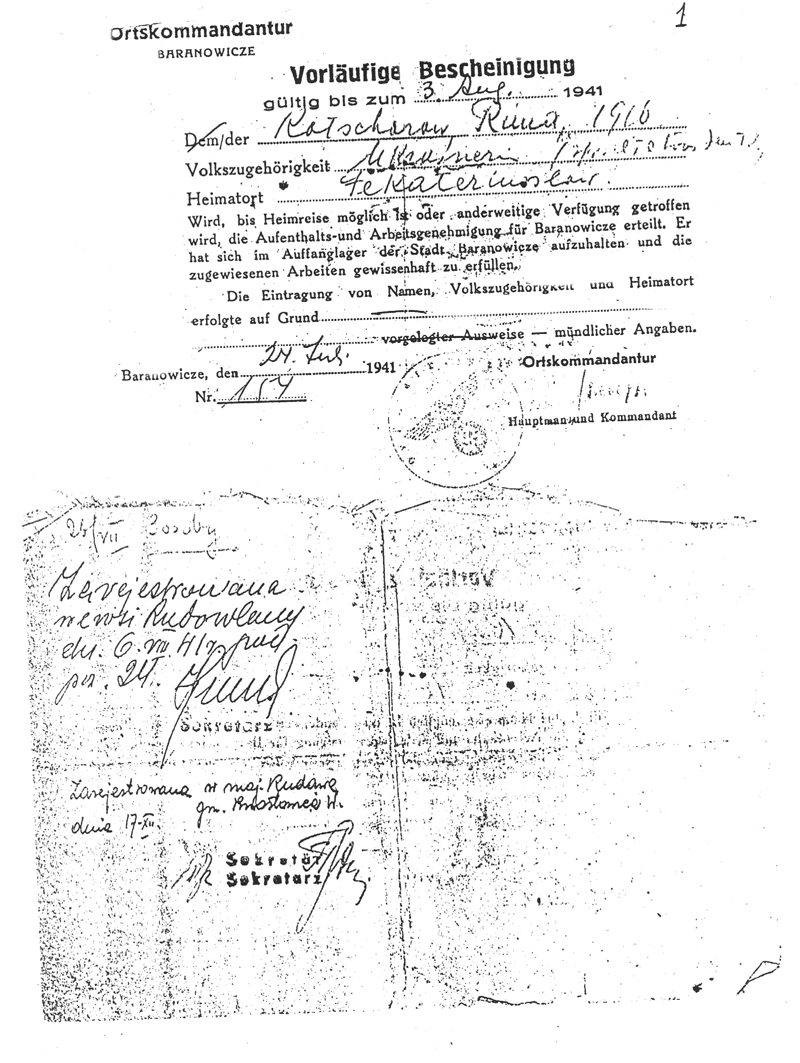 1
Ortskommandantur
BARANOWICZE
Vorläufige Bescheinigung
gültig bis zum 3. Aug. 1941
Dem/der Kotscharow Rima, 1916
Volkszugehörigkeit Ukrainerin
Heimatort Jekaterinoslaw.
Wird, bis Heimreise möglich ist oder anderweitige Verfügung getroffen
wird, die Aufenthalts-und Arbeitsgenehmigung für Baranowicze erteilt. Er
hat sich im Auffanglager der Stadt Baranowicze aufzuhalten und die
zugewiesenen Arbeiten gewissenhaft zu erfüllen.
Die Eintragung von Namen, Volkszugehörigkeit und Heimatort
erfolgte auf Grund
vorgelegter Ausweise — mündlicher Angaben.
Baranowicze, den 24. Jul. 1941
Ortskommandantur
Nr. 154
Hauptmann und Kommandant
24/VII
Zarejestrowana
we wsi Rudowlany
dn. 6.VIII 41 r. pod
poz. 24.
Sekretarz
Zarejestrowana w maj. Rudawa
gm.
dnia 17-XII.
Sekretär
Sekretarz